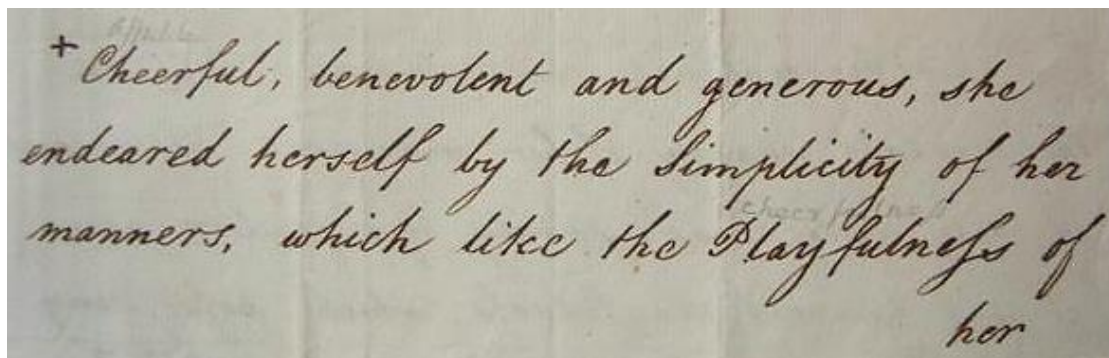 + Cheerful, benevolent and generous, she
endeared herself by the Simplicity of her
cheerfulness
manners, which like the Playfulneſs of
her